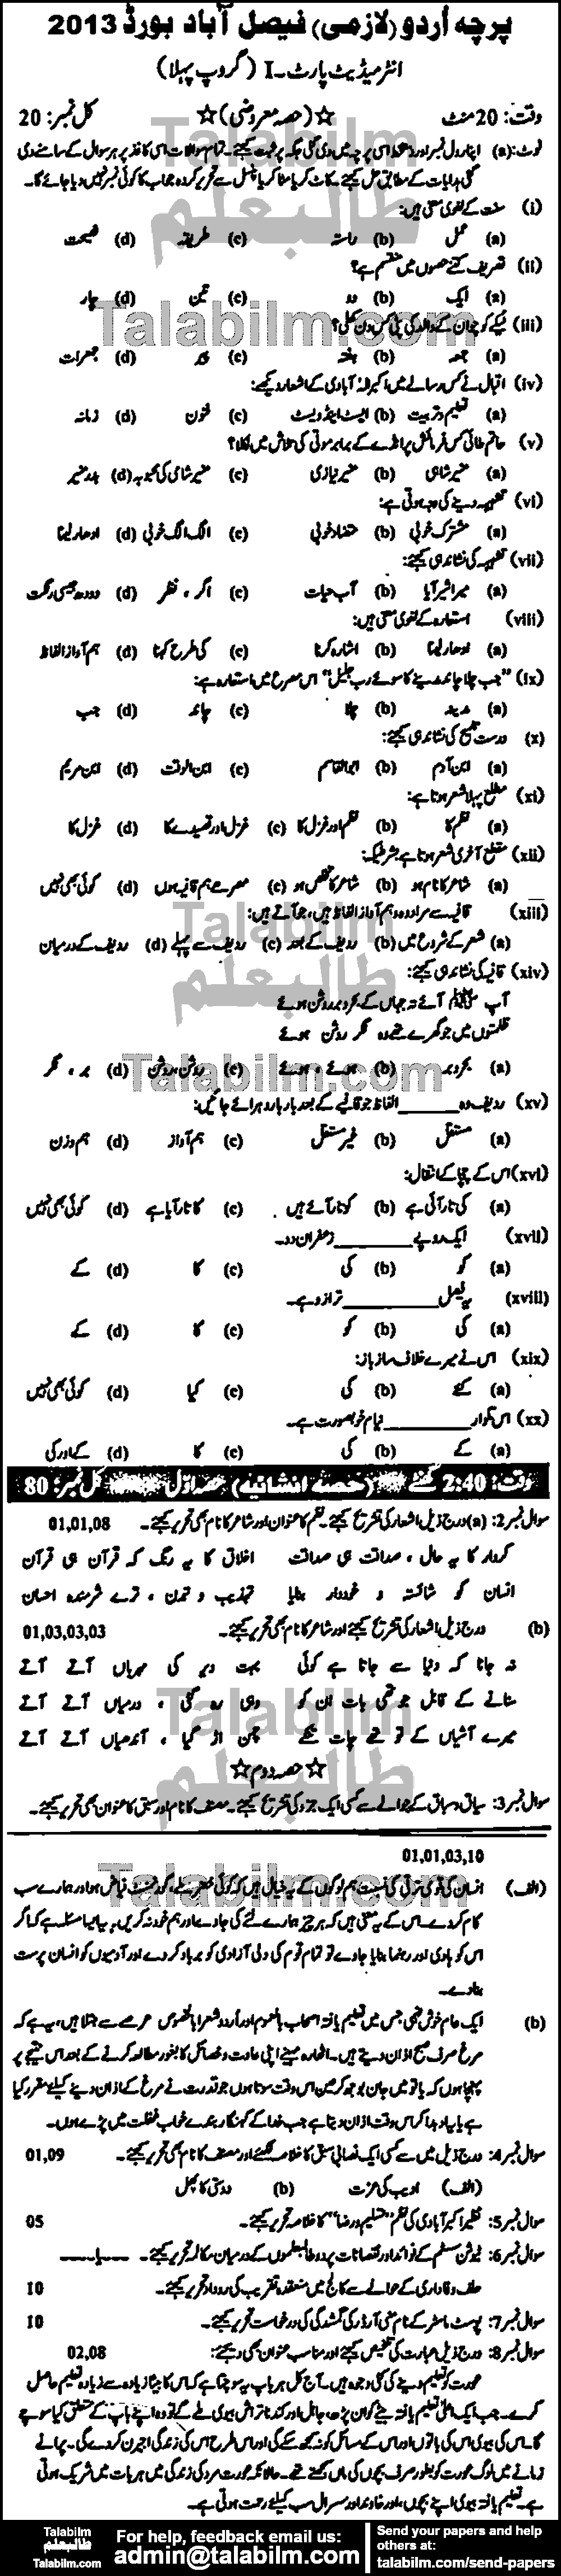 پرچہ اُردو (لازمی) فیصل آباد بورڈ 2013
انٹرمیڈیٹ پارٹ-I (گروپ پہلا)
وقت: 20 منٹ ☆(حصہ معروضی)☆ کل نمبر: 20
(i) سنت کے لغوی معنی ہیں:
(a) عمل (b) راستہ (c) طریقہ (d) نصیحت
(ii) تعریف کتنے حصوں میں منقسم ہے؟
(a) ایک (b) دو (c) تین (d) چار
(iii) ٹیکے کو جوان کے والد کی پٹی کس دن کھلی؟
(a) جمعہ (b) ہفتہ (c) پیر (d) جمعرات
(iv) اقبال نے کس رسالے میں اکبر الہ آبادی کے اشعار دیکھے:
(a) تعلیم و تربیت (b) ایسٹ اینڈ ویسٹ (c) فنون (d) زمانہ
(v) حاتم طائی کس فرمائش پر انڈے کے برابر موتی کی تلاش میں نکلا؟
(a) منیر شاہی (b) منیر نیازی (c) منیر شامی کی محبوبہ (d) بدر منیر
(vi) تشبیہ دینے کی وجہ ہوتی ہے:
(a) مشترک خوبی (b) متضاد خوبی (c) الگ الگ خوبی (d) ادھار لینا
(vii) تشبیہ کی نشاندہی کیجئے:
(a) میرا شیر آیا (b) آب حیات (c) اگر ، نظر (d) دودھ جیسی رنگت
(viii) استعارہ کے لغوی معنی ہیں:
(a) ادھار لینا (b) اشارہ کرنا (c) کی طرح کہنا (d) ہم آواز الفاظ
(ix) "جب چلا چاند مدینے کا سوئے رب جلیل" اس مصرع میں استعارہ ہے:
(a) مدینہ (b) چلا (c) چاند (d) جب
(x) درست تلمیح کی نشاندہی کیجئے:
(a) ابن آدم (b) ابوالقاسم (c) ابن الوقت (d) ابن مریم
(xi) مطلع پہلا شعر ہوتا ہے:
(a) نظم کا (b) نظم اور غزل کا (c) غزل اور قصیدے کا (d) غزل کا
(xii) مقطع آخری شعر ہوتا ہے بشرطیکہ:
(a) شاعر کا نام ہو (b) شاعر کا تخلص ہو (c) مصرعے ہم قافیہ ہوں (d) کوئی بھی نہیں
(xiii) قافیہ سے مراد وہ ہم آواز الفاظ ہیں، جو آتے ہیں:
(a) شعر کے شروع میں (b) ردیف کے بعد (c) ردیف سے پہلے (d) ردیف کے درمیان
(xiv) قافیہ کی نشاندہی کیجئے:
آپ ﷺ آئے تہ جہاں کے بحر و بر روشن ہوئے
ظلمتوں میں جو گھرے تھے وہ نگر روشن ہوئے
(a) بحر و بر (b) ہوئے ، ہوئے (c) روشن، روشن (d) بر ، نگر
(xv) ردیف وہ ______ الفاظ جو قافیے کے بعد بار بار دہرائے جائیں:
(a) مستقل (b) غیر مستقل (c) ہم آواز (d) ہم وزن
(xvi) اس کے چچا کے انتقال:
(a) کی تار آئی ہے (b) کو تار آئے ہیں (c) کا تار آیا ہے (d) کوئی بھی نہیں
(xvii) ایک روپے ______ زعفران دو۔
(a) کو (b) کی (c) کا (d) کے
(xviii) یہ فیصل ______ ترازو ہے۔
(a) کی (b) کو (c) کا (d) کے
(xix) اس نے میرے خلاف ساز باز:
(a) کئے (b) کی (c) کیا (d) کوئی بھی نہیں
(xx) اس تلوار ______ نیام خوبصورت ہے۔
(a) کے (b) کی (c) کا (d) کے اور کی
وقت: 2:40 گھنٹے (حصہ انشائیہ) حصہ اوّل کل نمبر: 80
سوال نمبر 2: (a) درج ذیل اشعار کی تشریح کیجئے۔ نظم کا عنوان اور شاعر کا نام بھی تحریر کیجئے۔ 01,01,08
کردار کا یہ حال ، صداقت ہی صداقت اخلاق کا یہ رنگ کہ قرآن ہی قرآن
انسان کو شائستہ و خوددار بنایا تہذیب و تمدن ، ترے شرمندہ احسان
(b) درج ذیل اشعار کی تشریح کیجئے اور شاعر کا نام بھی تحریر کیجئے۔ 01,03,03,03
نہ جانا کہ دنیا سے جاتا ہے کوئی بہت دیر کی مہرباں آتے آتے
سنانے کے قابل جو تھی بات ان کو وہی رہ گئی ، درمیاں آتے آتے
میرے آشیاں کے تو تھے چار تنکے چمن اڑ گیا ، آندھیاں آتے آتے
☆حصہ دوم☆
سوال نمبر 3: سیاق و سباق کے حوالے سے کسی ایک جزو کی تشریح کیجئے۔ مصنف کا نام اور سبق کا عنوان بھی تحریر کیجئے۔
01,01,03,10
(الف) انسان کی قومی ترقی کی نسبت ہم لوگوں کے یہ خیال ہیں کہ کوئی خضر ملے، گورنمنٹ فیاض ہو اور ہمارے سب
کام کر دے۔ اس کے یہ معنی ہیں کہ ہر چیز ہمارے لئے کی جاوے اور ہم خود نہ کریں۔ یہ ایسا مسئلہ ہے کہ اگر
اس کو ہادی اور رہنما بنایا جاوے تو تمام قوم کی دلی آزادی کو برباد کر دے اور آدمیوں کو انسان پرست
بنا دے۔
(b) ایک عام خوش فہمی جس میں تعلیم یافتہ اصحاب بالعموم اور اُردو شعرا بالخصوص عرصے سے مبتلا ہیں، یہ ہے کہ
مرغ صرف صبح اذان دیتے ہیں۔ اٹھارہ مہینے اپنی عادت و خصائل کا بغور مطالعہ کرنے کے بعد اس نتیجے پر
پہنچا ہوں کہ یا تو میں جان بوجھ کر عین اس وقت سوتا ہوں جو قدرت نے مرغ کے اذان دینے کیلئے مقرر کیا
ہے یا یہ ادبدا کر اس وقت اذان دیتا ہے جب خدا کے گنہگار بندے خواب غفلت میں پڑے ہوں۔
سوال نمبر 4: درج ذیل میں سے کسی ایک نصابی سبق کا خلاصہ لکھئے اور مصنف کا نام بھی تحریر کیجئے۔ 01,09
(الف) ادیب کی عزت (b) دوستی کا پھل
سوال نمبر 5: نظیر اکبر آبادی کی نظم "تسلیم و رضا" کا خلاصہ تحریر کیجئے۔ 05
سوال نمبر 6: ٹیوشن سسٹم کے فوائد اور نقصانات پر دو طالبعلموں کے درمیان مکالمہ تحریر کیجئے۔ ---یا---
حلف وفاداری کے حوالے سے کالج میں منعقدہ تقریب کی روداد تحریر کیجئے۔ 10
سوال نمبر 7: پوسٹ ماسٹر کے نام منی آرڈر کی گمشدگی کی درخواست تحریر کیجئے۔ 10
سوال نمبر 8: درج ذیل عبارت کی تلخیص کیجئے اور مناسب عنوان بھی دیجئے: 02,08
عورت کو تعلیم دینے کی کئی وجوہ ہیں۔ آج کل ہر باپ یہ سوچتا ہے کہ اس کا بیٹا زیادہ سے زیادہ تعلیم حاصل
کرے۔ جب ایک اعلیٰ تعلیم یافتہ بیٹے کو ان پڑھ، جاہل اور کندہ ناتراش بیوی ملے گی تو وہ اپنے باپ کے متعلق کیا سوچے
گا۔ اس کی بیوی اس کی باتوں اور اس کے مسائل کو نہ سمجھ سکے گی اور اس طرح اس کی زندگی اجیرن کر دے گی۔ پرانے
زمانے میں لوگ عورت کو بطور صرف بچوں کی ماں رکھتے تھے۔ حالانکہ عورت مرد کی زندگی میں ہر بات میں شریک ہوتی
ہے۔ تعلیم یافتہ بیوی اپنے بچوں، اور خاوند اور سسرال سب کیلئے رحمت ہوتی ہے۔
Talabilm
طالبعلم
Talabilm.com
For help, feedback email us:
admin@talabilm.com
Send your papers and help
others at:
talabilm.com/send-papers